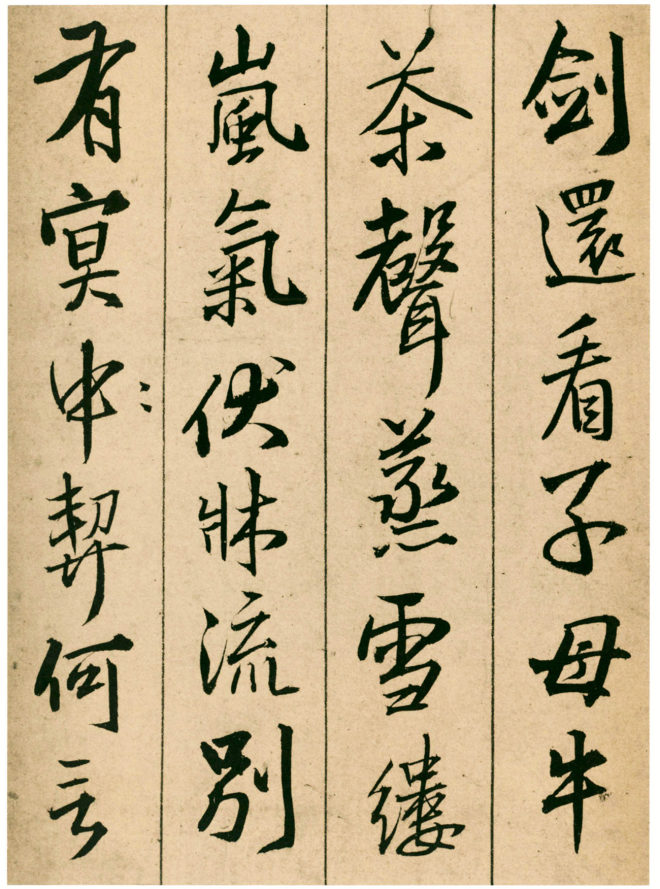 劍還看子母牛
茶聲蒸雪縷
嵐氣伏牀流別
有冥中契何言